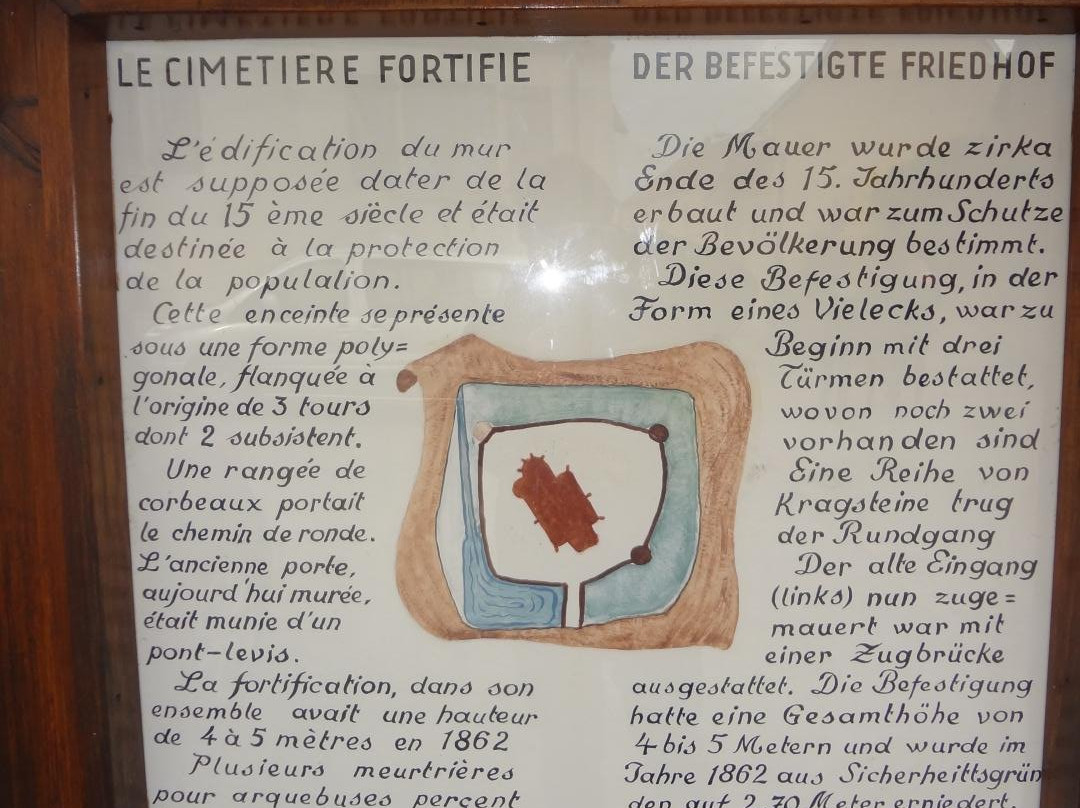 LE CIMETIERE FORTIFIE
L'édification du mur
est supposée dater de la
fin du 15 ème siècle et était
destinée à la protection
de la populalion.
Cette enceinte se présente
sous une forme poly=
gonale, flanquée à
l'origine de 3 tours
dont 2 subsistent.
Une rangée de
corbeaux portait
le chemin de ronde.
L'ancienne porte,
aujourd'hui murée,
était munie d'un
pont-levis.
La fortification, dans son
ensemble avait une hauteur
de 4 à 5 mètres en 1862
Plusieurs meurtrières
pour arquebuses percent
DER BEFESTIGTE FRIEDHOF
Die Mauer wurde zirka
Ende des 15. Jahrhunderts
erbaut und war zum Schutze
der Bevölkerung bestimmt.
Diese Befestigung, in der
Form eines Vielecks, war zu
Beginn mit drei
Türmen bestattet,
wovon noch zwei
vorhanden sind
Eine Reihe von
Kragsteine trug
der Rundgang
Der alte Eingang
(links) nun zuge=
mauert war mit
einer Zugbrücke
ausgestattet. Die Befestigung
hatte eine Gesamthöhe von
4 bis 5 Metern und wurde im
Jahre 1862 aus Sicherheittsgrün
den auf 2,70 Meter erniedert